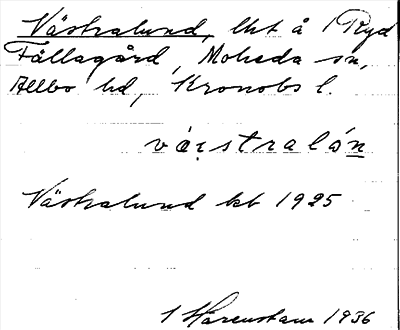 Västralund, lht å 1 Ryd
Fällagård, Moheda sn,
Allbo hd, Kronobs l.
västralón
Västralund kb 1925
1936